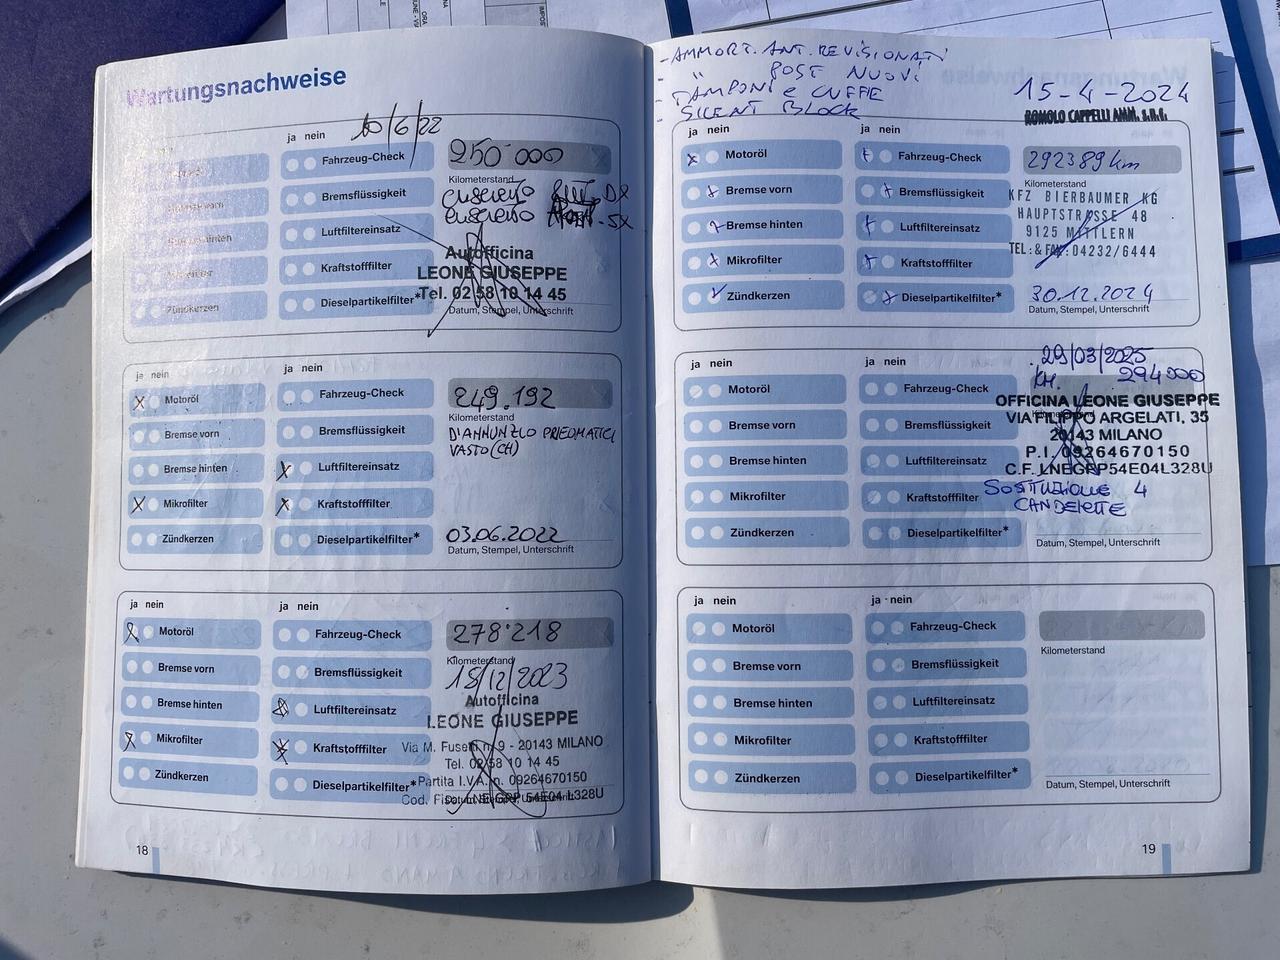 Wartungsnachweise
10/6/22
ja nein
Fahrzeug-Check
Bremsflüssigkeit
Luftfiltereinsatz
Kraftstofffilter
Zündkerzen
Dieselpartikelfilter*
250.000
Kilometerstand
Autofficina
LEONE GIUSEPPE
Tel. 02 58 10 14 45
Datum, Stempel, Unterschrift
ja nein
ja nein
Motoröl
Fahrzeug-Check
Bremse vorn
Bremsflüssigkeit
Bremse hinten
Luftfiltereinsatz
Mikrofilter
Kraftstofffilter
Zündkerzen
Dieselpartikelfilter*
249.192
Kilometerstand
D'ANNUNZIO PNEUMATICI
VASTO (CH)
03.06.2022
Datum, Stempel, Unterschrift
ja nein
ja nein
Motoröl
Fahrzeug-Check
Bremse vorn
Bremsflüssigkeit
Bremse hinten
Luftfiltereinsatz
Mikrofilter
Kraftstofffilter
Zündkerzen
Dieselpartikelfilter*
278.218
Kilometerstand
15/12/2023
Autofficina
LEONE GIUSEPPE
Via M. Fusetti n. 9 - 20143 MILANO
Tel. 02 58 10 14 45
Partita I.V.A. n. 09264670150
Cod. Fisc. LNE GRP 54E04 L328U
Datum, Stempel, Unterschrift
18
- AMMORT. ANT. REVISIONATI
- " POST NUOVI
- TAMPONI e CUFFIE
- SILENT BLOCK
15-4-2024
ROMOLO CAPPELLI AMM. S.R.L.
ja nein
ja nein
Motoröl
Fahrzeug-Check
Bremse vorn
Bremsflüssigkeit
Bremse hinten
Luftfiltereinsatz
Mikrofilter
Kraftstofffilter
Zündkerzen
Dieselpartikelfilter*
292389 km
Kilometerstand
KFZ BIERBAUMER KG
HAUPTSTRASSE 48
9125 MITTLERN
TEL.:& FAX:04232/6444
30.12.2024
Datum, Stempel, Unterschrift
ja nein
ja nein
Motoröl
Fahrzeug-Check
Bremse vorn
Bremsflüssigkeit
Bremse hinten
Luftfiltereinsatz
Mikrofilter
Kraftstofffilter
Zündkerzen
Dieselpartikelfilter*
29/03/2025
KM. 294000
Kilometerstand
OFFICINA LEONE GIUSEPPE
VIA FILIPPO ARGELATI, 35
20143 MILANO
P.I. 09264670150
C.F. LNEGRP54E04L328U
SOSTITUZIONE 4
CANDELETTE
Datum, Stempel, Unterschrift
ja nein
ja nein
Motoröl
Fahrzeug-Check
Bremse vorn
Bremsflüssigkeit
Bremse hinten
Luftfiltereinsatz
Mikrofilter
Kraftstofffilter
Zündkerzen
Dieselpartikelfilter*
Kilometerstand
Datum, Stempel, Unterschrift
19